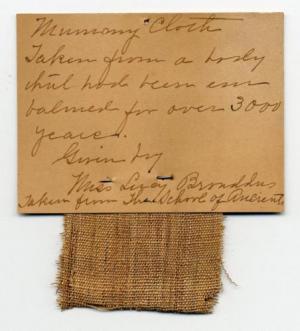 Mummy Cloth
Taken from a body
that had been em
balmed for over 3000
years.
Given by
Miss Lizey Broaddus
Taken from The School of Ancients